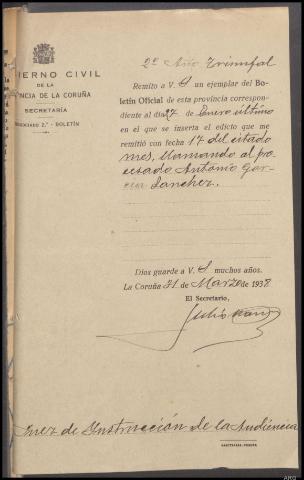 IERNO CIVIL
DE LA
NCIA DE LA CORUÑA
SECRETARÍA
2.º - BOLETÍN
2º Año Triunfal
Remito a V. S un ejemplar del Bo-
letín Oficial de esta provincia correspon-
diente al día 27 de Enero último
en el que se inserta el edicto que me
remitió con fecha 17 del citado
mes, llamando al pro-
cesado Antonio Gar-
cia Sanchez.
Dios guarde a V. S muchos años.
La Coruña 21 de Marzo de 1938
El Secretario,
Juez de Instrucción de la Audiencia